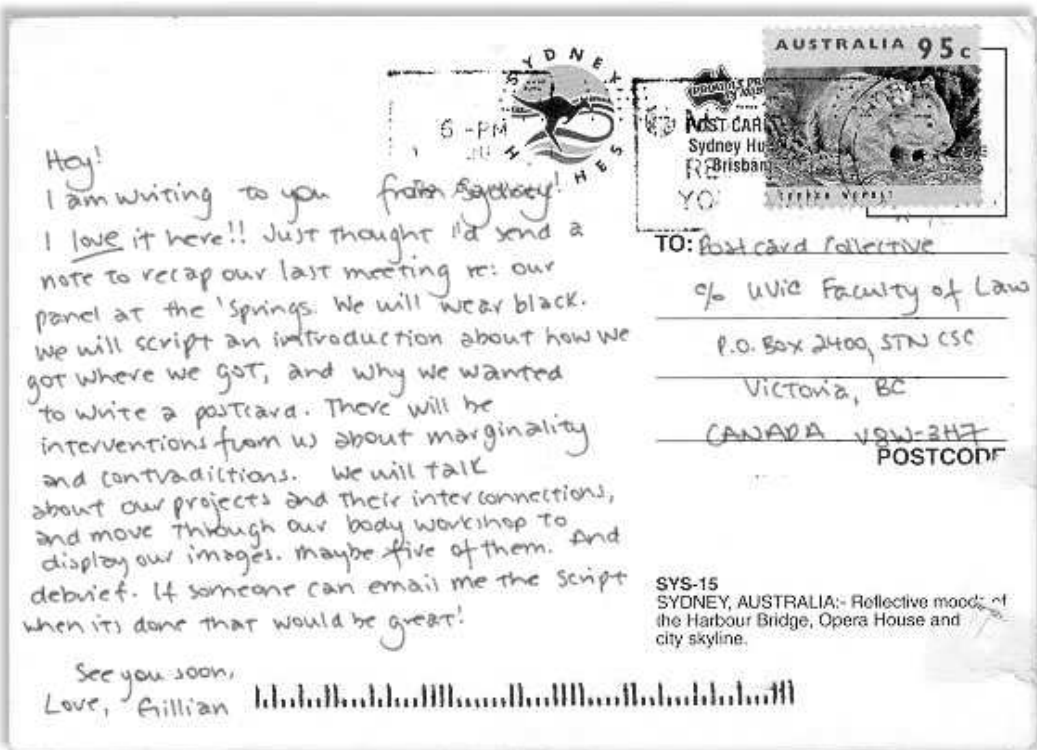 SYDNEY
AUSTRALIA 95c
6-PM
POST CAR
Sydney Hu
Brisban
RE
YO
Hey!
I am writing to you from Sydney!
I love it here!! Just thought I'd send a
note to recap our last meeting re: our
panel at the 'Springs. We will wear black.
we will script an introduction about how we
got where we got, and why we wanted
to write a postcard. There will be
interventions from us about marginality
and contradictions. We will talk
about our projects and their interconnections,
and move through our body workshop to
display our images. maybe five of them. And
debrief. If someone can email me the script
when its done that would be great!
See you soon,
Love, Gillian
TO: Postcard Collective
c/o UVic Faculty of Law
P.O. Box 2400, STN CSC
Victoria, BC
CANADA V8W-3H7
POSTCODE
SYS-15
SYDNEY, AUSTRALIA:- Reflective moods of
the Harbour Bridge, Opera House and
city skyline.